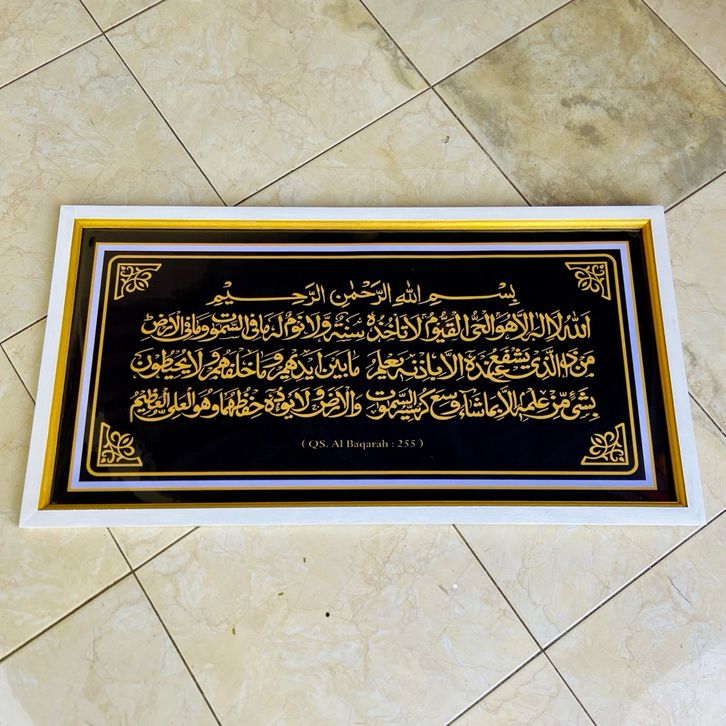 بِسْمِ اللهِ الرَّحْمٰنِ الرَّحِيْمِ
اَللهُ لَا اِلٰهَ اِلَّا هُوَ الْحَيُّ الْقَيُّوْمُ لَا تَأْخُذُهٗ سِنَةٌ وَّلَا نَوْمٌ لَهٗ مَا فِى السَّمٰوٰتِ وَمَا فِى الْاَرْضِ
مَنْ ذَا الَّذِيْ يَشْفَعُ عِنْدَهٗ اِلَّا بِاِذْنِهٖ يَعْلَمُ مَا بَيْنَ اَيْدِيْهِمْ وَمَا خَلْفَهُمْ وَلَا يُحِيْطُوْنَ
بِشَيْءٍ مِّنْ عِلْمِهٖ اِلَّا بِمَا شَاءَ وَسِعَ كُرْسِيُّهُ السَّمٰوٰتِ وَالْاَرْضَ وَلَا يَئُوْدُهٗ حِفْظُهُمَا وَهُوَ الْعَلِيُّ الْعَظِيْمُ
( QS. Al Baqarah : 255 )